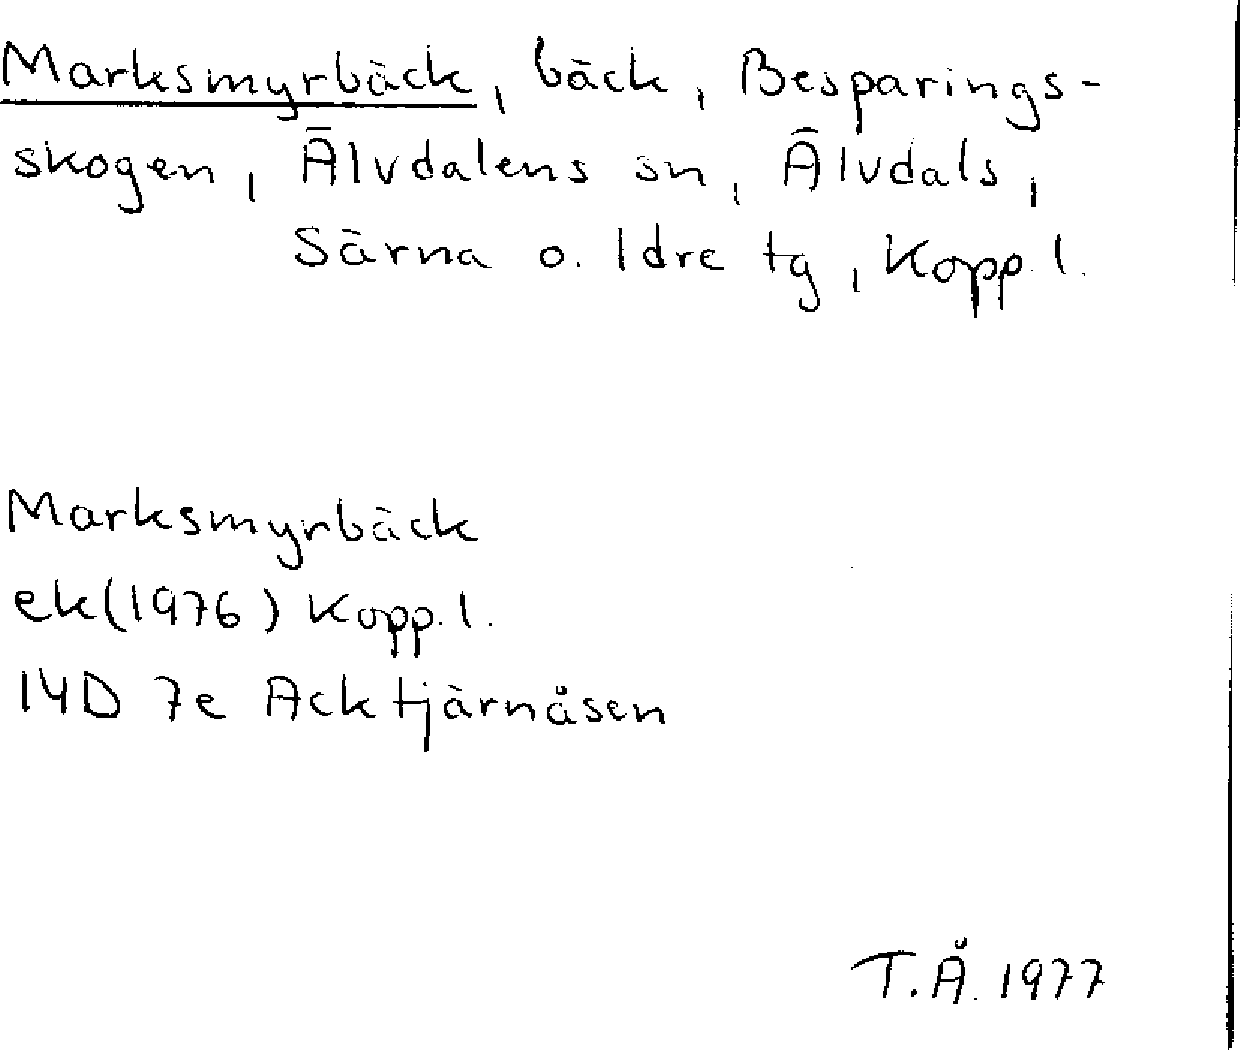 Marksmyrbäck, bäck, Besparings-
skogen, Älvdalens sn, Älvdals,
Särna o. Idre tg, Kopp. l.
Marksmyrbäck
ek(1976) Kopp. l.
14D 7e Acktjärnåsen
T.Å. 1977